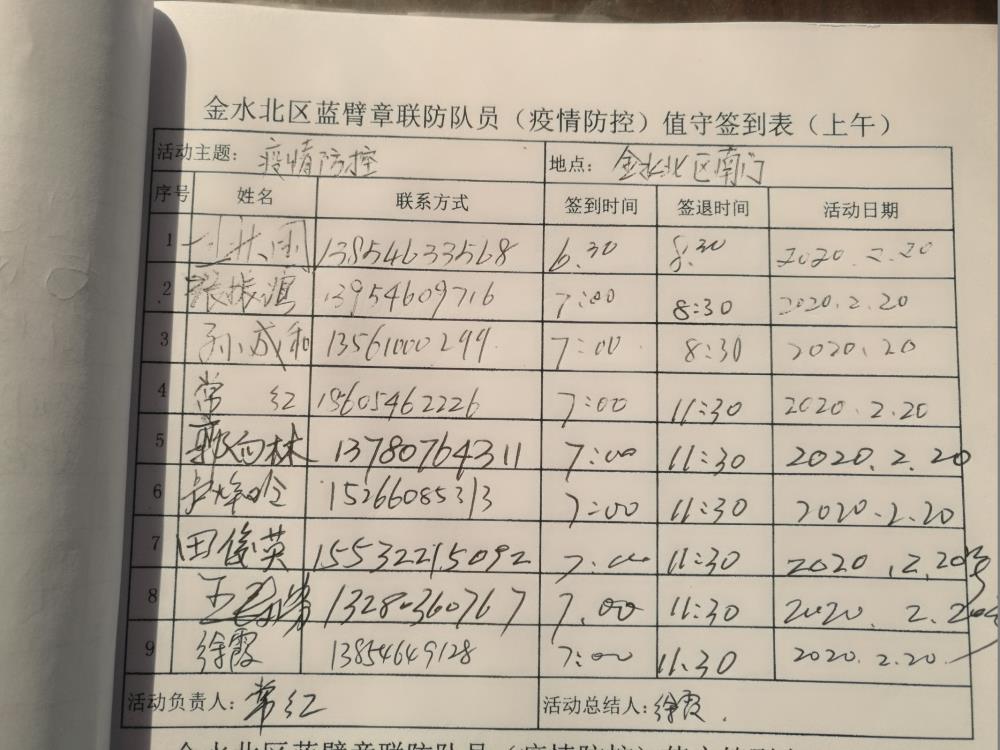 金水北区蓝臂章联防队员（疫情防控）值守签到表（上午）
活动主题：疫情防控 地点：金水北区南门
序号 姓名 联系方式 签到时间 签退时间 活动日期
1 13854633568 6.30 8.30 2020.2.20
2 张振鸿 13954609716 7:00 8:30 2020.2.20
3 孙成和 13561000299 7:00 8:30 2020.20
4 常红 15605462226 7:00 11:30 2020.2.20
5 郭向林 13780764311 7:00 11:30 2020.2.20
6 15266085313 7:00 11:30 2020.2.20
7 田俊英 15532215092 7:00 11:30 2020.2.20号
8 王 13280360767 7.00 11:30 2020.2.20号
9 徐霞 13854649128 7:00 11.30 2020.2.20
活动负责人：常红 活动总结人：徐霞.